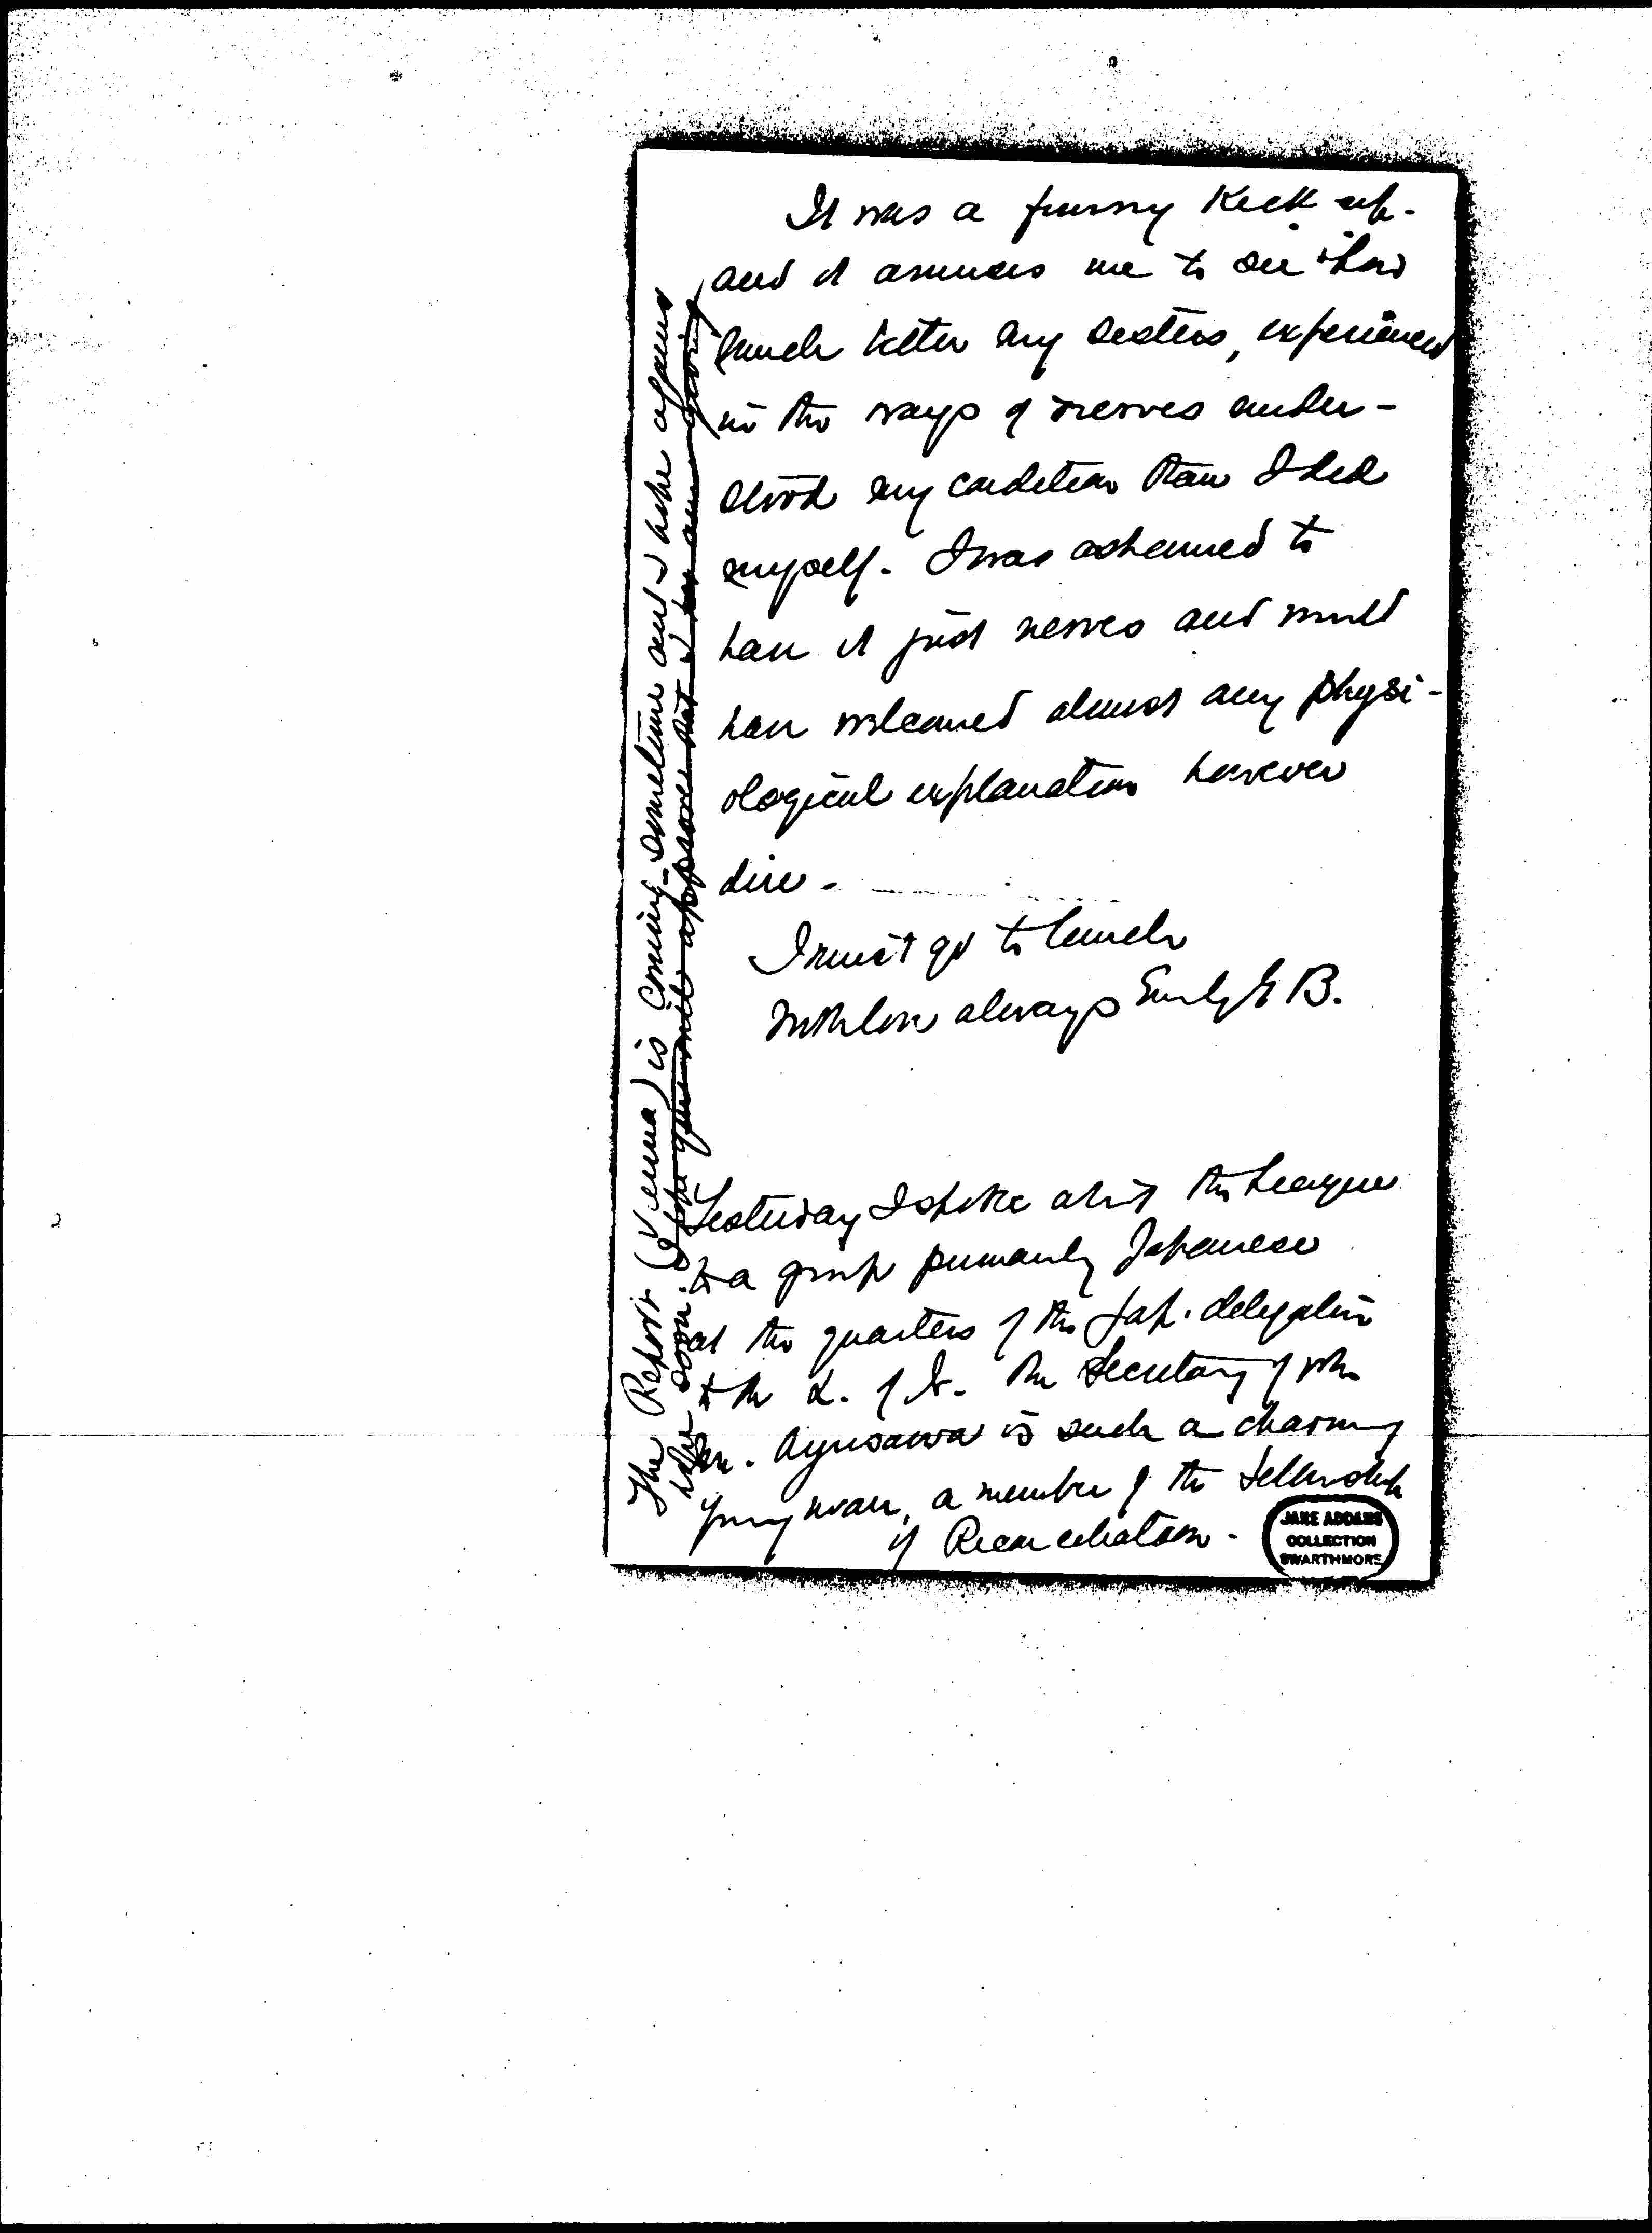 It was a funny kick-up -
and it amuses me to see how
much better my sisters, experienced
in the ways of nerves under-
stood my condition than I did
myself. I was ashamed to
have it just nerves and would
have welcomed almost any physi-
ological explanation however
dire -
I must go to lunch
With love always Emily G B.
Yesterday I spoke about the League
to a group primarily Japanese
at the quarters of the Jap. delegation
to the L. of N. The Secretary of wh.
Mr. Ayusawa is such a charming
young man, a member of the Fellowship
of Reconciliation -
The Report (Vienna) is coming - sometime and I hope
hope soon. I hope you will approve that I am
JANE ADDAMS
COLLECTION
SWARTHMORE